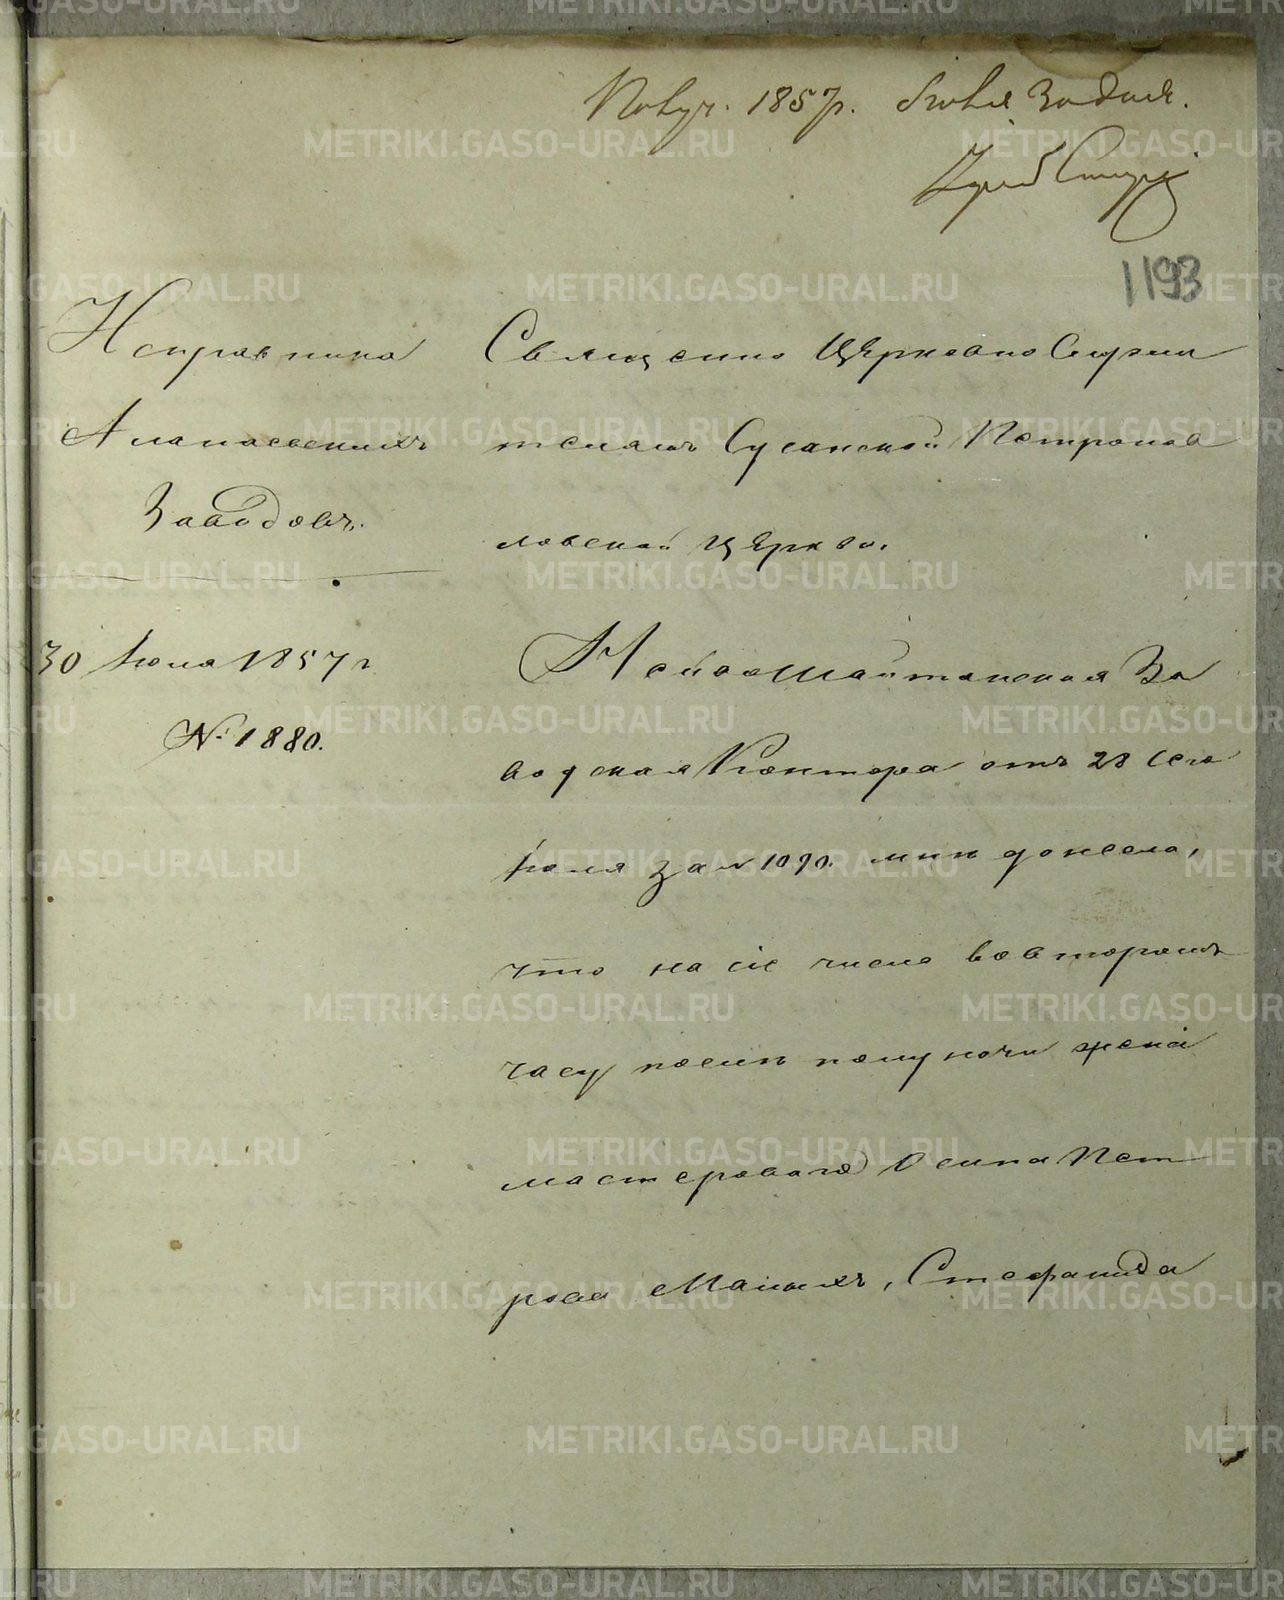 Получ. 1857 г. Июля 30 дня.
1193
Исправника
Алапаевскихъ
Заводовъ.
30 Июля 1857 г
№ 1880.
Священно Церковно Служи
телямъ Сусанской Петропав
ловской Церкви.
Нейвошайтанская За
водская Контора отъ 28 сего
Июля за № 1090. мнѣ донесла,
что на сіе число во второмъ
часу послѣ полуночи жена
мастероваго Осипа Пет
рова Малыхъ, Стефанида
METRIKI.GASO-URAL.RU